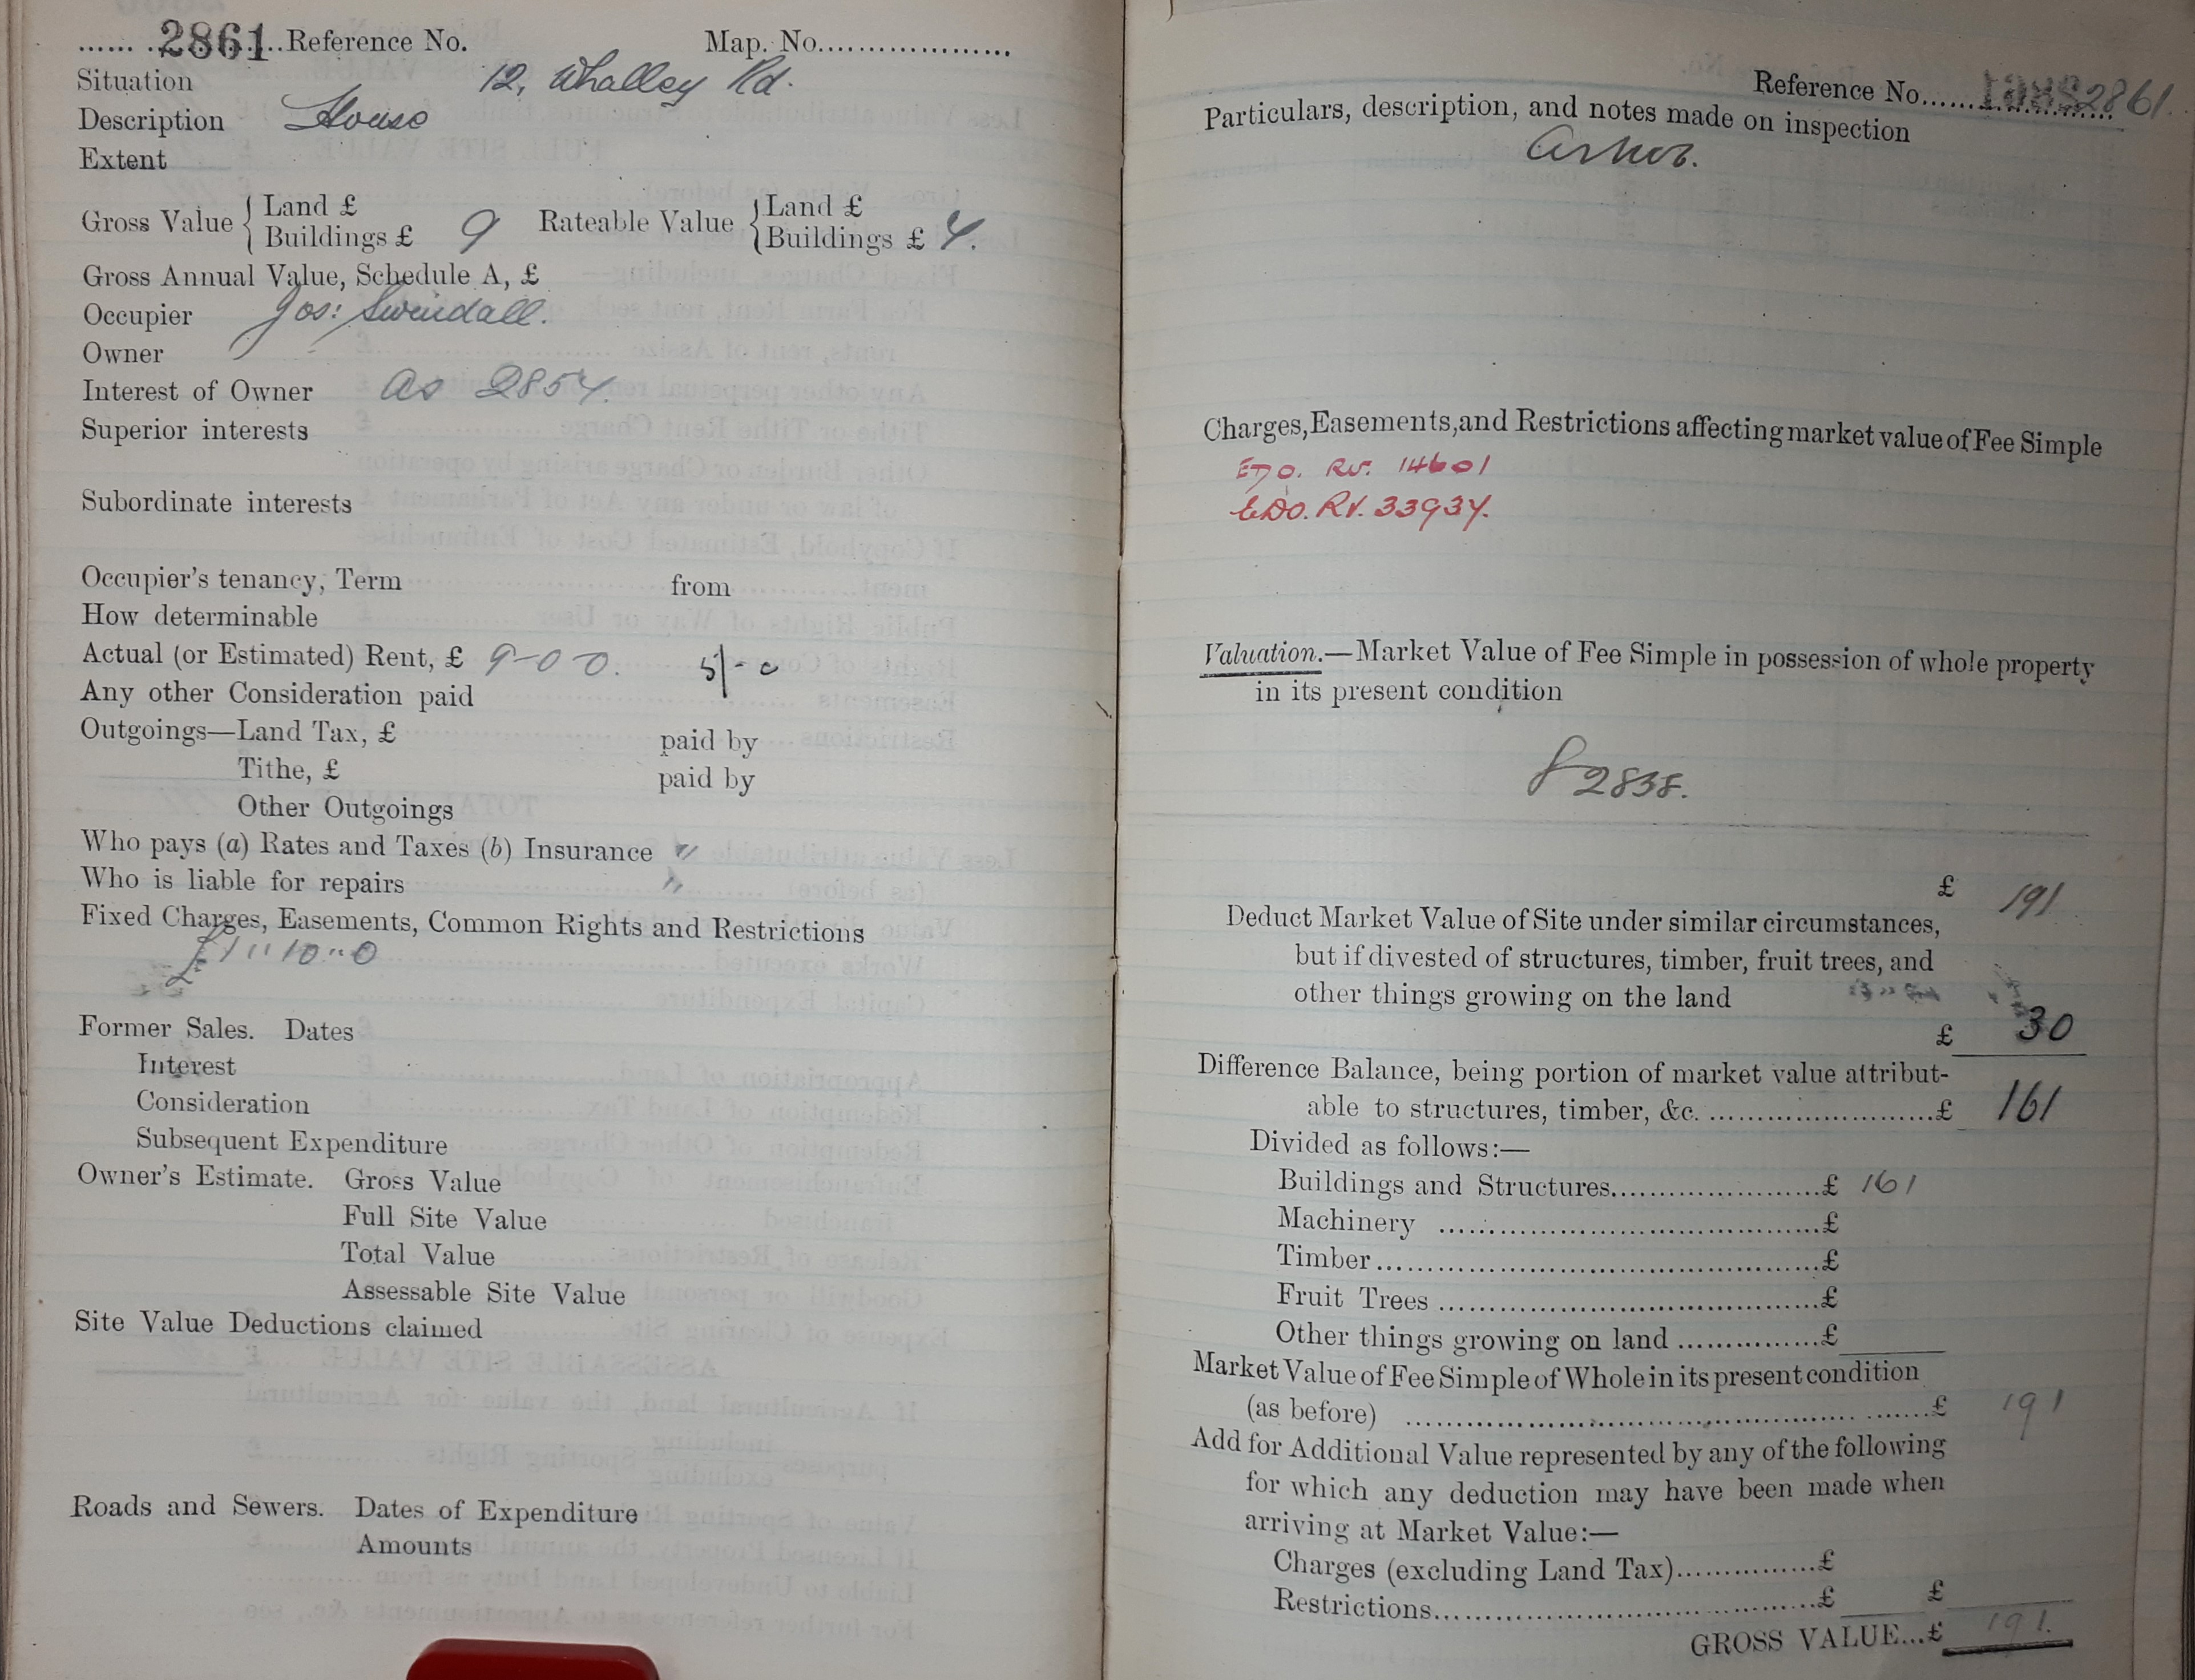 2861 Reference No. Map. No.
Situation 12, Whalley Rd.
Description House
Extent
Gross Value { Land £
Buildings £ 9
Rateable Value { Land £
Buildings £ 4.
Gross Annual Value, Schedule A, £
Occupier Jos: Swindall.
Owner
Interest of Owner as 2854.
Superior interests
Subordinate interests
Occupier's tenancy, Term from
How determinable
Actual (or Estimated) Rent, £ 9-0-0. 5/-0
Any other Consideration paid
Outgoings—Land Tax, £ paid by
Tithe, £ paid by
Other Outgoings
Who pays (a) Rates and Taxes (b) Insurance "
Who is liable for repairs "
Fixed Charges, Easements, Common Rights and Restrictions
£1"10"0
Former Sales. Dates
Interest
Consideration
Subsequent Expenditure
Owner's Estimate. Gross Value
Full Site Value
Total Value
Assessable Site Value
Site Value Deductions claimed
Roads and Sewers. Dates of Expenditure
Amounts
Reference No. 2861.
Particulars, description, and notes made on inspection
Charges, Easements, and Restrictions affecting market value of Fee Simple
EDO. Rv. 14601
EDO. RV. 33934.
Valuation.—Market Value of Fee Simple in possession of whole property
in its present condition
2838.
£ 191
Deduct Market Value of Site under similar circumstances,
but if divested of structures, timber, fruit trees, and
other things growing on the land
£ 30
Difference Balance, being portion of market value attribut-
able to structures, timber, &c. £ 161
Divided as follows:—
Buildings and Structures £ 161
Machinery £
Timber £
Fruit Trees £
Other things growing on land £
Market Value of Fee Simple of Whole in its present condition
(as before) £ 191
Add for Additional Value represented by any of the following
for which any deduction may have been made when
arriving at Market Value:—
Charges (excluding Land Tax) £
Restrictions £ £
GROSS VALUE...£ 191.